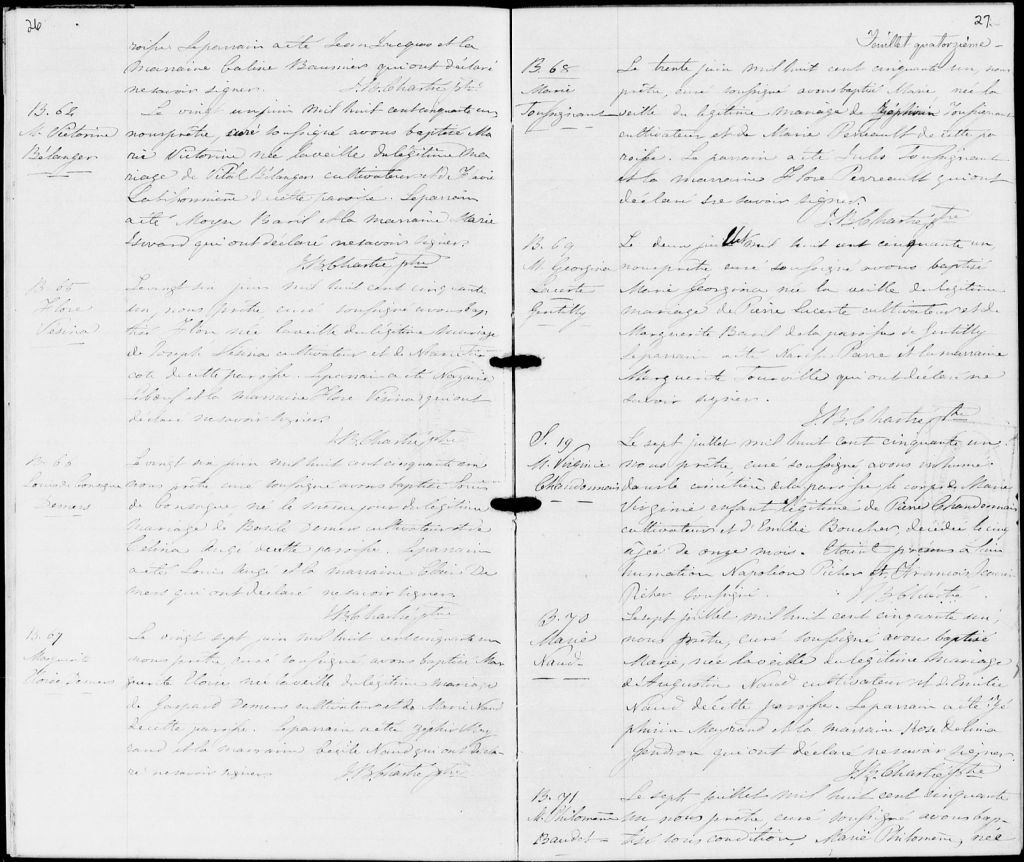 26
roisse Le parrain a été Jean Lucques et la
marraine Celine Beaumier qui ont déclaré
ne savoir signer. J.B. Chartré ptre
B. 64
M. Victorine
Bélanger
Le vingt un juin mil huit cent cinquante un,
nous prêtre, curé soussigné avons baptisé Ma
rie Victorine née la veille du légitime ma
riage de Vital Bélanger cultivateur et de
Labissonnière de cette paroisse. Le parrain
a été Moyse Baril et la marraine Marie
qui ont déclaré ne savoir signer.
J.B. Chartré ptre
B. 65
Flore
Vesina
Le vingt six juin mil huit cent cinquante
un, nous prêtre curé soussigné avons bap
tisé Flore née la veille du légitime mariage
de Joseph Vesina cultivateur et de Marie
de cette paroisse. Le parrain a été Nazaire
Lebœuf et la marraine Flore Vesina qui ont
déclaré ne savoir signer.
J.B. Chartré ptre
B. 66
Louis de Gonzague
Demers
Le vingt six juin mil huit cent cinquante un
nous prêtre, curé soussigné avons baptisé Louis
de Gonzague, né le même jour du légitime
mariage de Basile Demers cultivateur et de
Celina Augé de cette paroisse. Le parrain
a été Louis Augé et la marraine De
mers qui ont déclaré ne savoir signer.
J.B. Chartré ptre
B. 67
Marguerite
Eloise Demers
Le vingt sept juin mil huit cent cinquante un
nous prêtre, curé soussigné avons baptisé Mar
guerite Eloise née la veille du légitime mariage
de Gaspard Demers cultivateur et de Marie Naud
de cette paroisse. Le parrain a été May
rand et la marraine Cécile Naud qui ont décla-
ré ne savoir signer. J.B. Chartré ptre
27.
Feuillet quatorzième
B. 68
Marie
Toussignant
Le trente juin mil huit cent cinquante un, nous
prêtre, curé soussigné avons baptisé Marie née la
veille du légitime mariage de Zéphirin Toussignant
cultivateur et de Marie Perreault de cette pa
roisse. Le parrain a été Jules Toussignant
et la marraine Flore Perreault qui ont
déclaré ne savoir signer.
J.B. Chartré ptre
B. 69
M. Georgina
Lacerte
Gentilly
Le deux juillet mil huit cent cinquante un,
nous prêtre curé soussigné avons baptisé
Marie Georgina née la veille du légitime
mariage de Pierre Lacerte cultivateur et de
Marguerite Baril de la paroisse de Gentilly
Le parrain a été Narcisse Parre et la marraine
Marguerite Tourville qui ont déclaré ne
savoir signer.
J.B. Chartré ptre
S. 19
M. Virginie
Chandonnais
Le sept juillet mil huit cent cinquante un
nous prêtre, curé soussigné avons inhumé
dans le cimetière de la paroisse le corps de Marie
Virginie enfant légitime de Pierre Chandonnais
cultivateur et d'Emilie Boucher, décédée le cinq
âgée de onze mois. Etoient présens à l'in
humation Napoléon Picher et François
Picher soussigné. J.B. Chartré
B. 70
Marie
Naud
Le sept juillet mil huit cent cinquante un,
nous prêtre, curé soussigné avons baptisé
Marie, née la veille du légitime mariage
d'Augustin Naud cultivateur et d'Emilie
Naud de cette paroisse. Le parrain a été Zé
phirin Mayrand et la marraine Rose Delima
Gendron qui ont déclaré ne savoir signer.
J.B. Chartré ptre
B. 71
M. Philomène
Baudet
Le sept juillet mil huit cent cinquante
un nous prêtre, curé soussigné avons bap
tisé sous condition, Marie Philomène, née